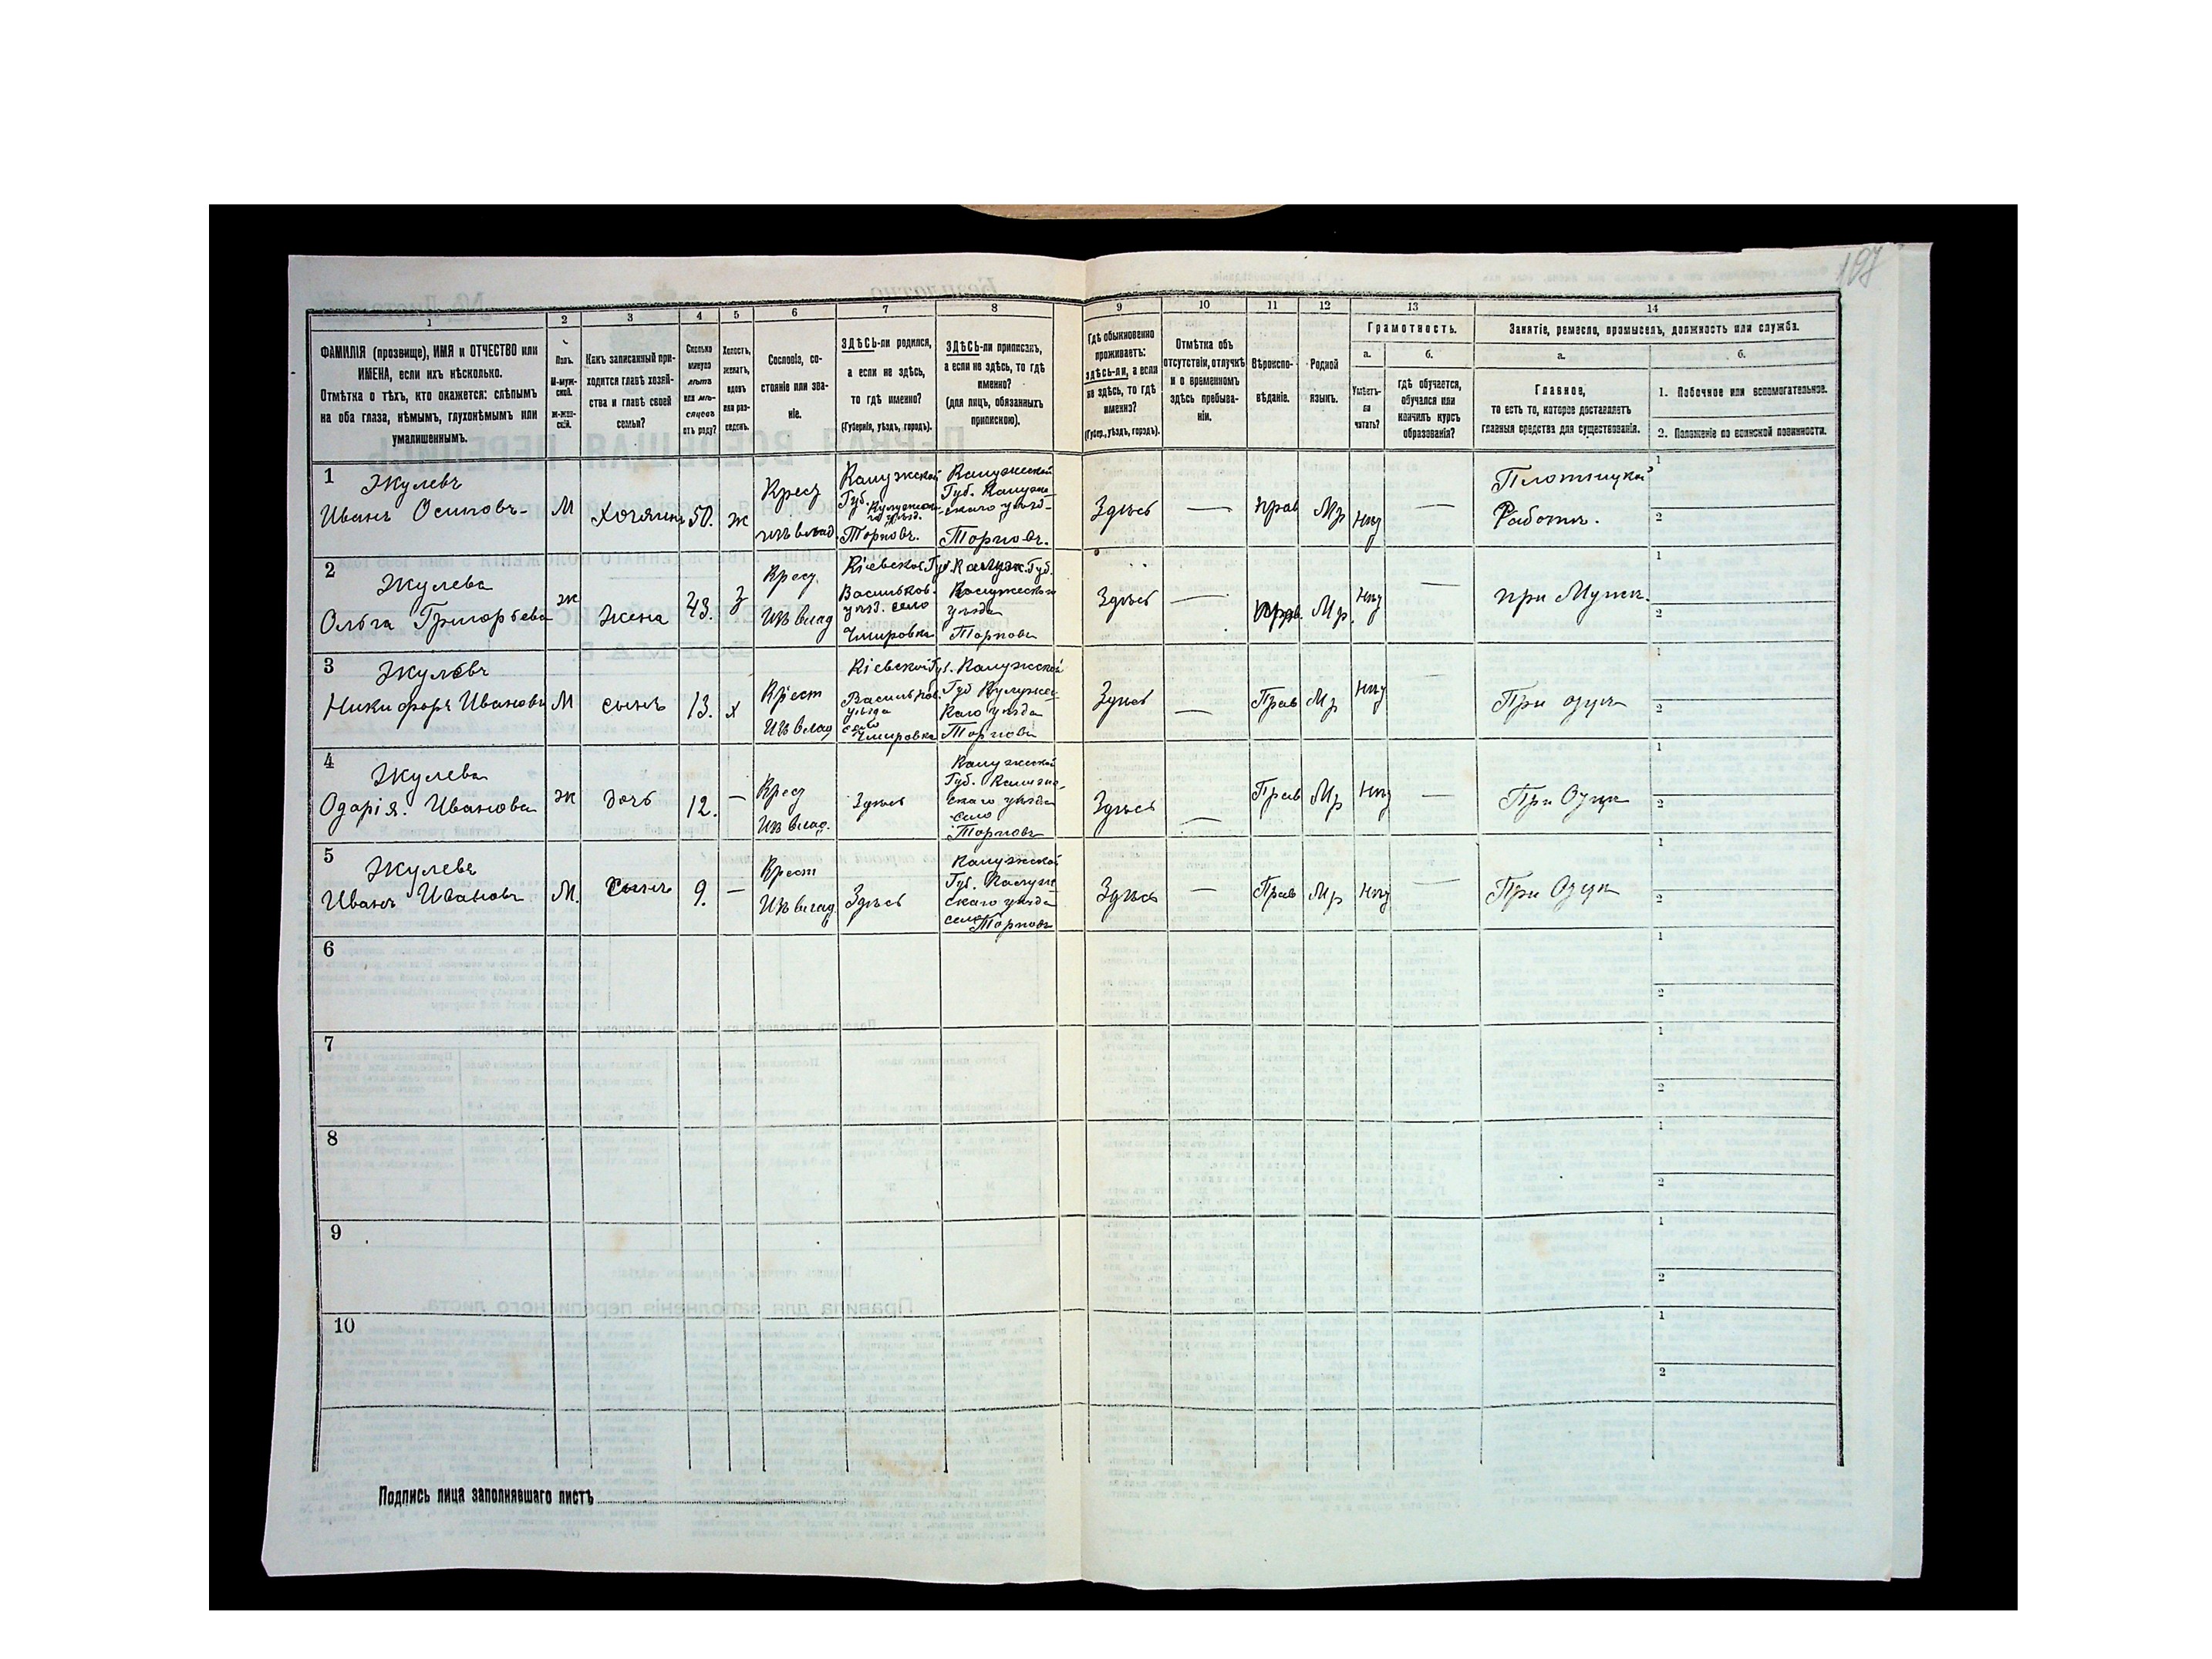 197
1 2 3 4 5 6 7 8 9 10 11 12 13 14
ФАМИЛІЯ (прозвище), ИМЯ и ОТЧЕСТВО или
ИМЕНА, если ихъ нѣсколько.
Отмѣтка о тѣхъ, кто окажется: слѣпымъ
на оба глаза, нѣмымъ, глухонѣмымъ или
умалишеннымъ.
Полъ.
М-муж-
ской.
Ж-жен-
скій.
Какъ записанный при-
ходится главѣ хозяй-
ства и главѣ своей
семьи?
Сколько
минуло
лѣтъ
или мѣ-
сяцевъ
отъ роду?
Холостъ,
женатъ,
вдовъ
или раз-
веденъ.
Сословіе, со-
стояніе или зва-
ніе.
ЗДѢСЬ-ли родился,
а если не здѣсь,
то гдѣ именно?
(Губернія, уѣздъ, городъ).
ЗДѢСЬ-ли приписанъ,
а если не здѣсь, то гдѣ
именно?
(для лицъ, обязанныхъ
припискою).
Гдѣ обыкновенно
проживаетъ:
здѣсь-ли, а если
не здѣсь, то гдѣ
именно?
(Губер., уѣздъ, городъ).
Отмѣтка объ
отсутствіи, отлучкѣ
и о временномъ
здѣсь пребыва-
ніи.
Вѣроиспо-
вѣданіе.
Родной
языкъ.
Грамотность.
а.
Умѣетъ-
ли
читать?
б.
гдѣ обучается,
обучался или
кончилъ курсъ
образованія?
Занятіе, ремесло, промыселъ, должность или служба.
а.
Главное,
то есть то, которое доставляетъ
главныя средства для существованія.
б.
1. Побочное или вспомогательное.
2. Положеніе по воинской повинности.
1 Жулевъ
Иванъ Осиповъ-
М
Хозяинъ
50.
ж
Крест
изъ влад.
Калужской
Губ. Калужска-
го уѣзд.
Торповъ.
Калужской
Губ. Калуж-
скаго уѣзд-
Торповъ.
Здѣсь
—
прав
Мр
Нѣт
—
Плотницкой
Работы.
1
2
2 Жулева
Ольга Григорьева
ж
жена
43.
З
Крест.
Изъ влад
Кіевской Губ.
Васильков.
уѣзд. село
Чмировка
Калужс. Губ.
Калужского
уѣзда
Торпова
Здѣсь
—
Прав.
Мр.
Нѣт
—
при Мужѣ.
1
2
3 Жулевъ
Никифоръ Ивановъ
М
сынъ
13.
х
Крест
Изъ влад
Кіевской Гу
Васильков.
уѣзда
село
Чмировка
Калужской
Губ Калужс-
Каго уѣзда
Торпова
Здѣсь
—
Прав
Мр
Нѣт
—
При отцѣ
1
2
4 Жулева
Одарія. Иванова
ж
дочь
12.
—
Крест
Изъ влад.
Здѣсь
Калужской
Губ. Калуж-
скаго уѣзда
село
Торповъ
Здѣсь
—
Прав
Мр
Нѣт
—
При Отцѣ
1
2
5 Жулевъ
Иванъ Ивановъ
М.
Сынъ
9.
—
Крест
Изъ влад
Здѣсь
Калужской
Губ. Калуж
скаго уѣзда
село
Торповъ
Здѣсь
—
Прав
Мр
Нѣт
—
При Отцѣ
1
2
6
1
2
7
1
2
8
1
2
9
1
2
10
1
2
Подпись лица заполнявшаго листъ